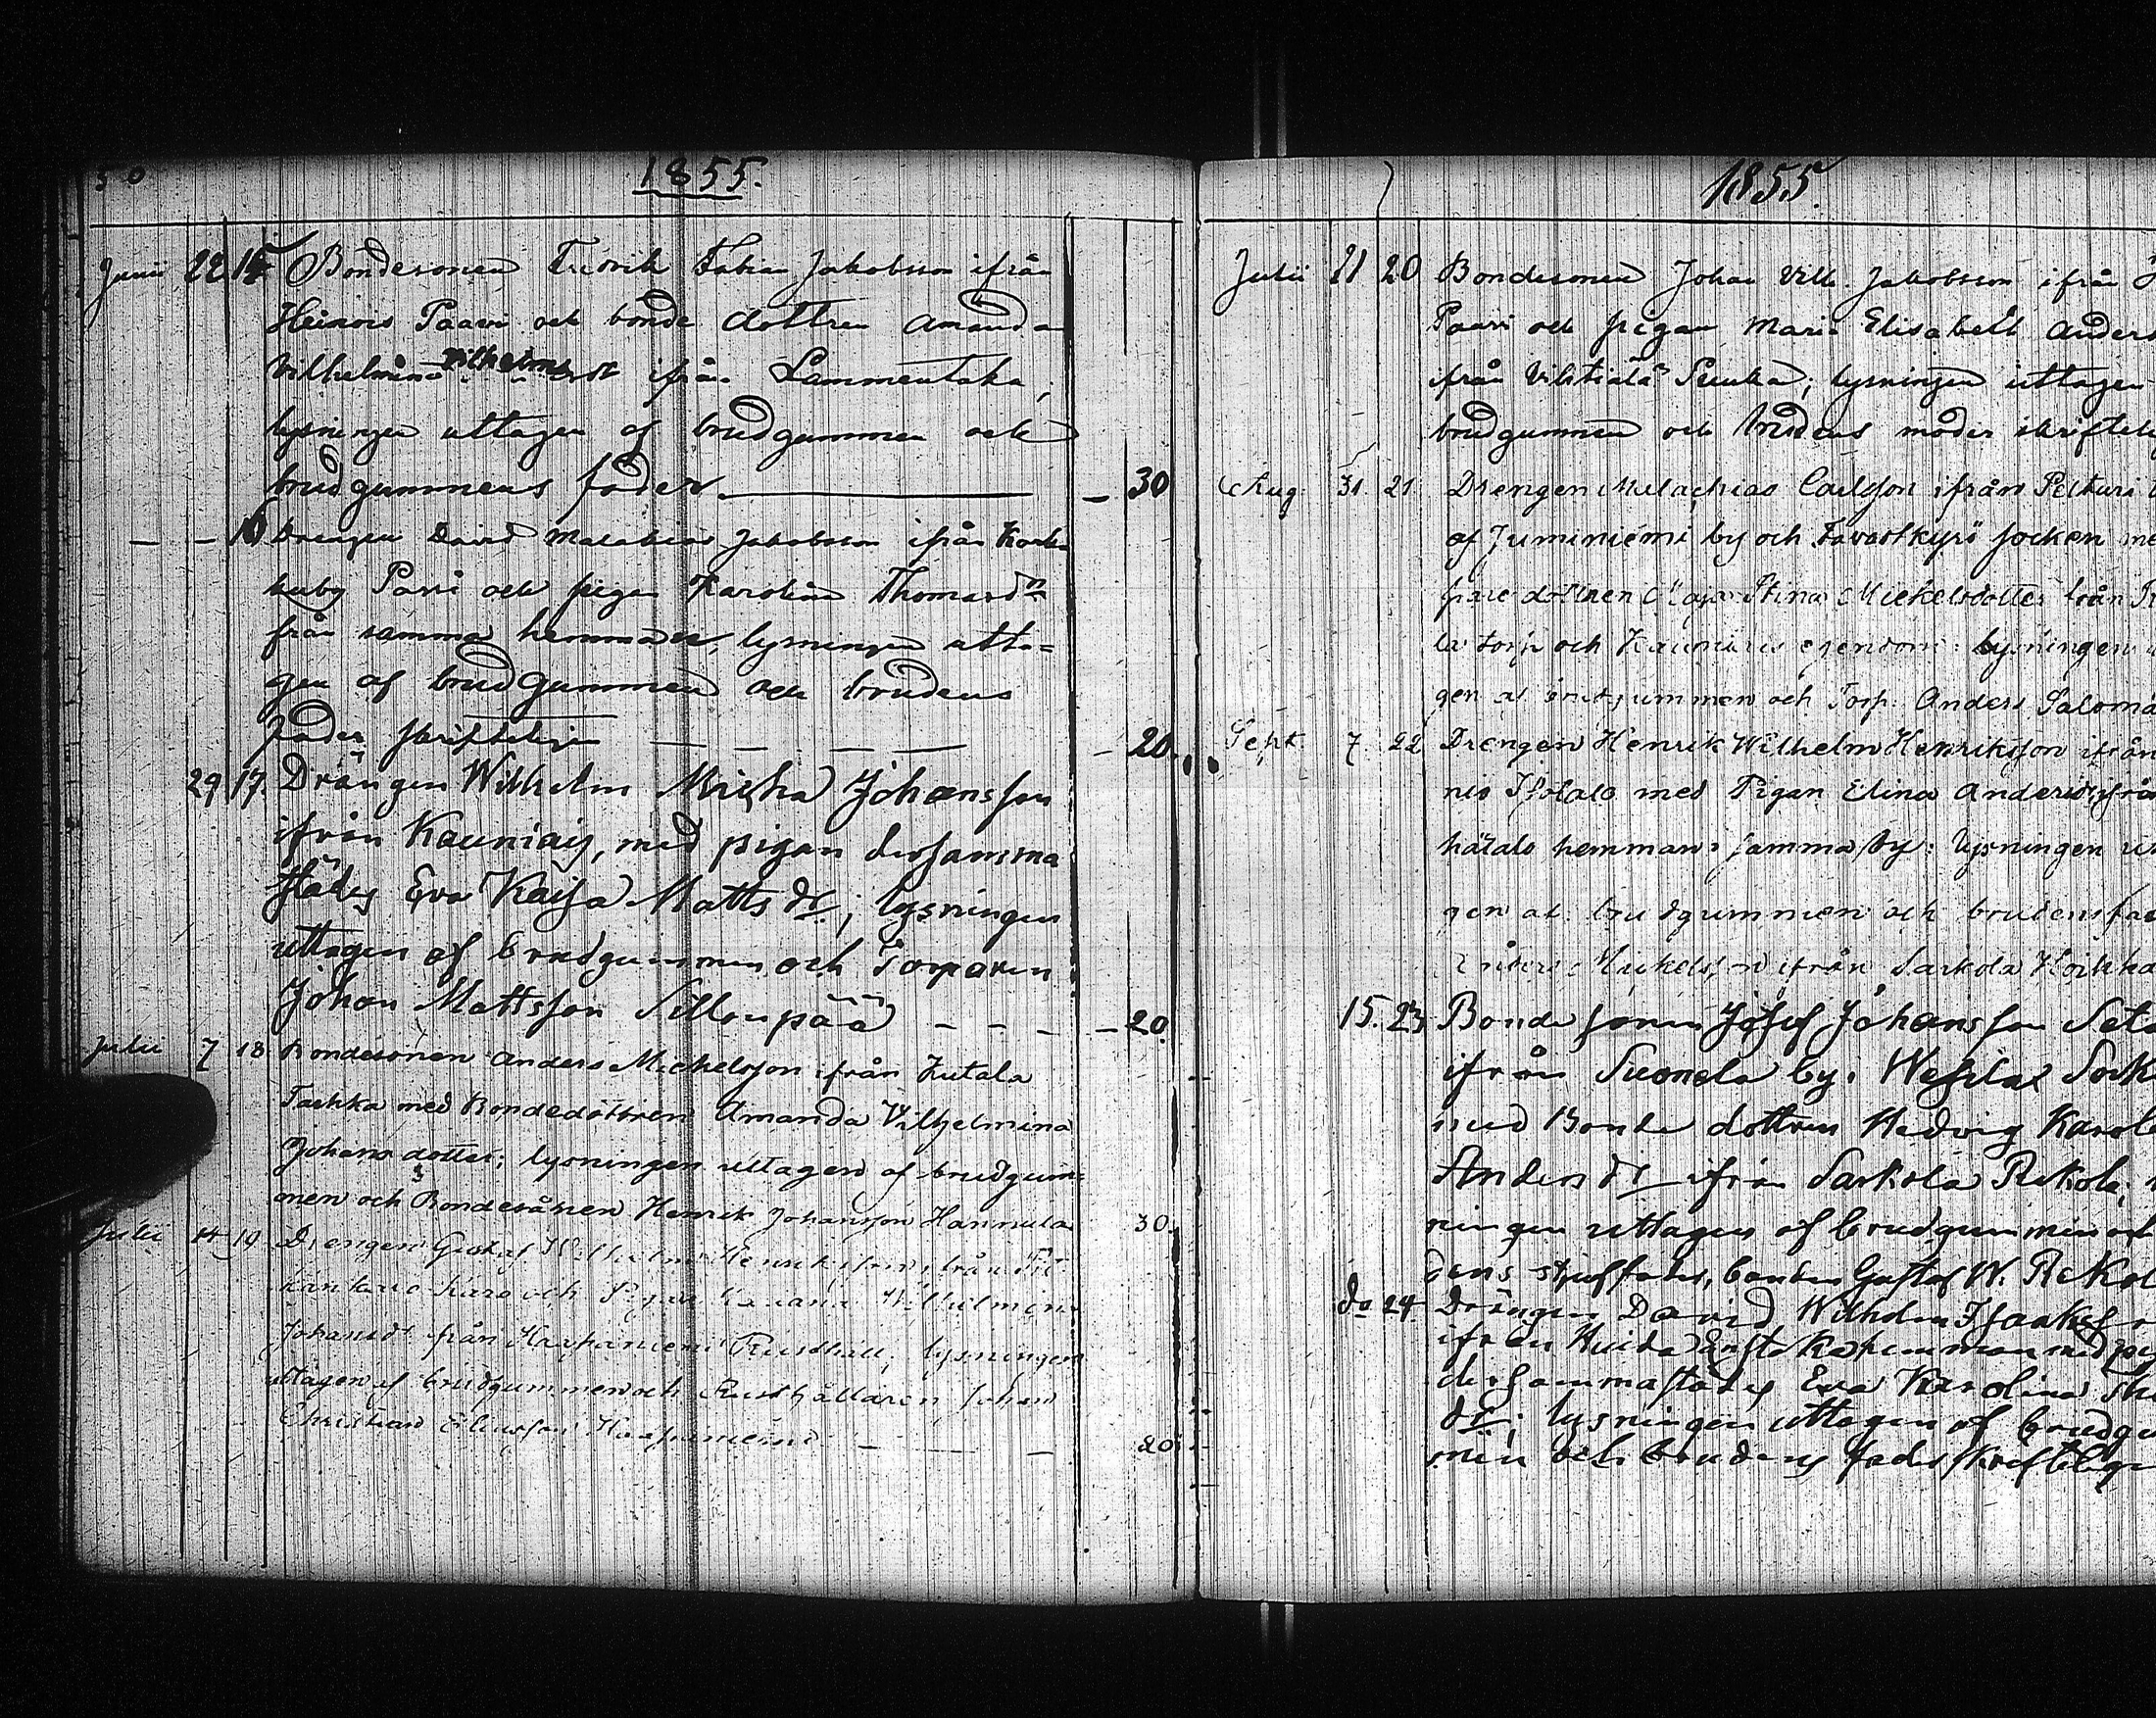 50
1855.
Junii 22 15 Bondesonen Fredrik Fabian Jakobsson ifrån
Heinois Paavi och bonde dottren Amanda
Vilhelmina Vilhelmsdr ifrån Lammentaka,
lysningen uttagen af brudgummen och
brudgummens fader — 30
— — 16 Drengen David Malakias Jakobsson ifrån Kark
kuby Passi och pigan Karolina Thomasdr
från samma hemman, lysningen utta=
gen af brudgummen och brudens
fader skrifteligen — — — — 20.
29 17. Drängen Wilhelm Micha Johansson
ifrån Kauniais, med pigan dersamma
städes Eva Kajsa Mattsdr; lysningen
uttagen af brudgummen och Torparen
Johan Mattsson Sillonpää - - - - 20.
Julii 7 18 Bondesonen Anders Michelsson ifrån Kutala
med Bondedottren Amanda Vilhelmina
Johansdotter; lysningen uttagen af brudgum=
men och Bondesånen Henrik Johansson Hannula 30.
Julii 14 19 Drengen Gustaf Wilhelm Henriksson från
Karo och Pigan Wilhelmina
Johansdr från Haapaniemi Rusthåll, lysningen
uttagen af brudgummen och Rusthållaren Johan
Christian Eliasson Haapaniemi — — — 20
1855.
Julii 21 20 Bondesonen Johan Vilh. Jakobsson ifrån
Paavi och pigan Maria Elisabeth Anders
ifrån Vilstiala Suuka; lysningen uttagen
brudgummen och brudens moder skriftelig
Aug. 31. 21 Drengen Malachias Carlsson ifrån Pelturi
af Juminiemi by och Tavastkyrö socken me
pare dottren Maja Stina Mickelsdotter från
la torp och Kauniais egendom: lysningen
gen af brudgummen och Torp. Anders Saloma
Sept. 7. 22 Drengen Henrik Wilhelm Henriksson ifrån
nis Isotalo med Pigan Elina Andersdr ifrån
hätalo hemman i samma by: lysningen ut
gen af brudgummen och brudens fa
Anders Mickelsson ifrån Sarkola Hoikka
15. 23 Bonde sonen Josef Johansson Seta
ifrån Suonola by. Wesila Sock
med Bonde dottren Hedvig Karol
Andersdr ifrån Sarkola Rekola;
ningen uttagen af brudgummen och
dens stjuffader, bonden Gustaf W. Rekol
do 24 Drängen David Wilhelm Isaksson
ifrån Huida hemman med
dersammastädes Eva Karolina
dr; lysningen uttagen af brudgu
men och brudens fader skrifteligen